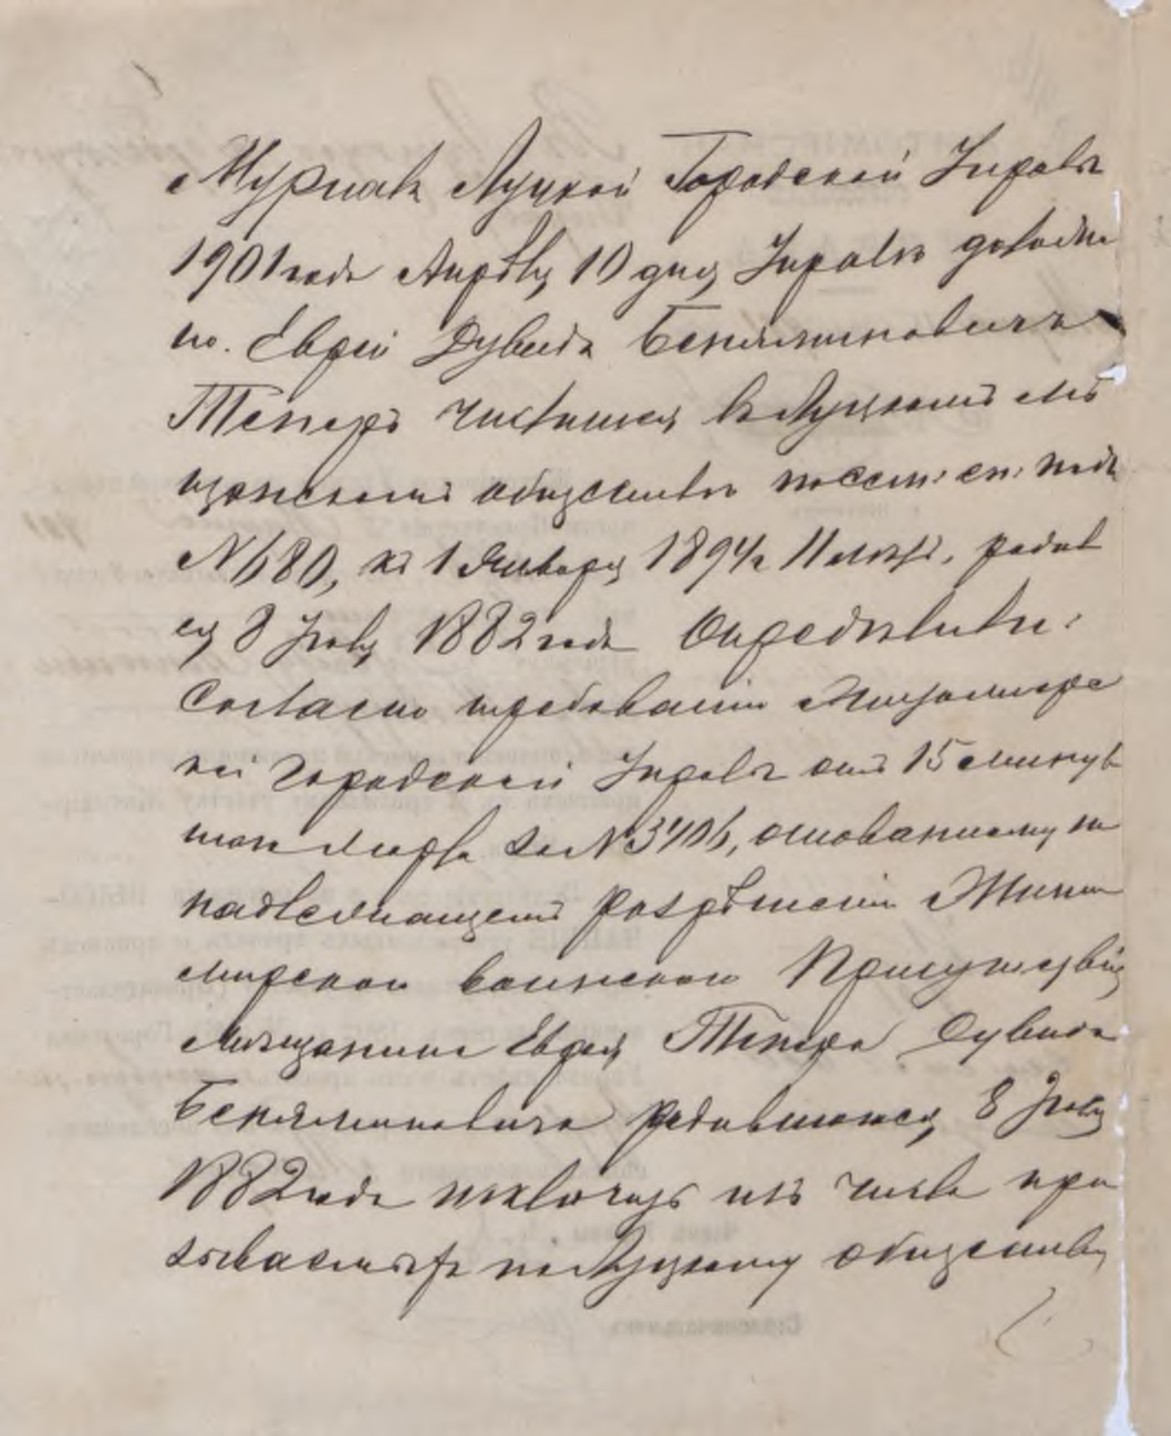 Журналъ Луцкой Городской Управы
1901 года Апрѣля 10 дня Управѣ доложе
но. Еврей Дувидъ Беньяминовичъ
Теперъ числится въ Луцкомъ мѣ
щанскомъ обществѣ по сем: сп: подъ
№ 680, къ 1 Января 1894 г. 11 лѣтъ, родив
ся 8 Іюля 1882 года Опредѣлили:
Согласно требованію Житомирс
кой Городской Управы отъ 15 минув
шаго Марта за № 3406, основанному на
надлежащемъ разрѣшеніи Жито
мирскаго воинскаго Присутствія
мѣщанина Еврея Тепера Дувида
Беньяминовича родившагося 8 Іюля
1882 года исключить изъ числа при
зываемыхъ по Луцкому обществу